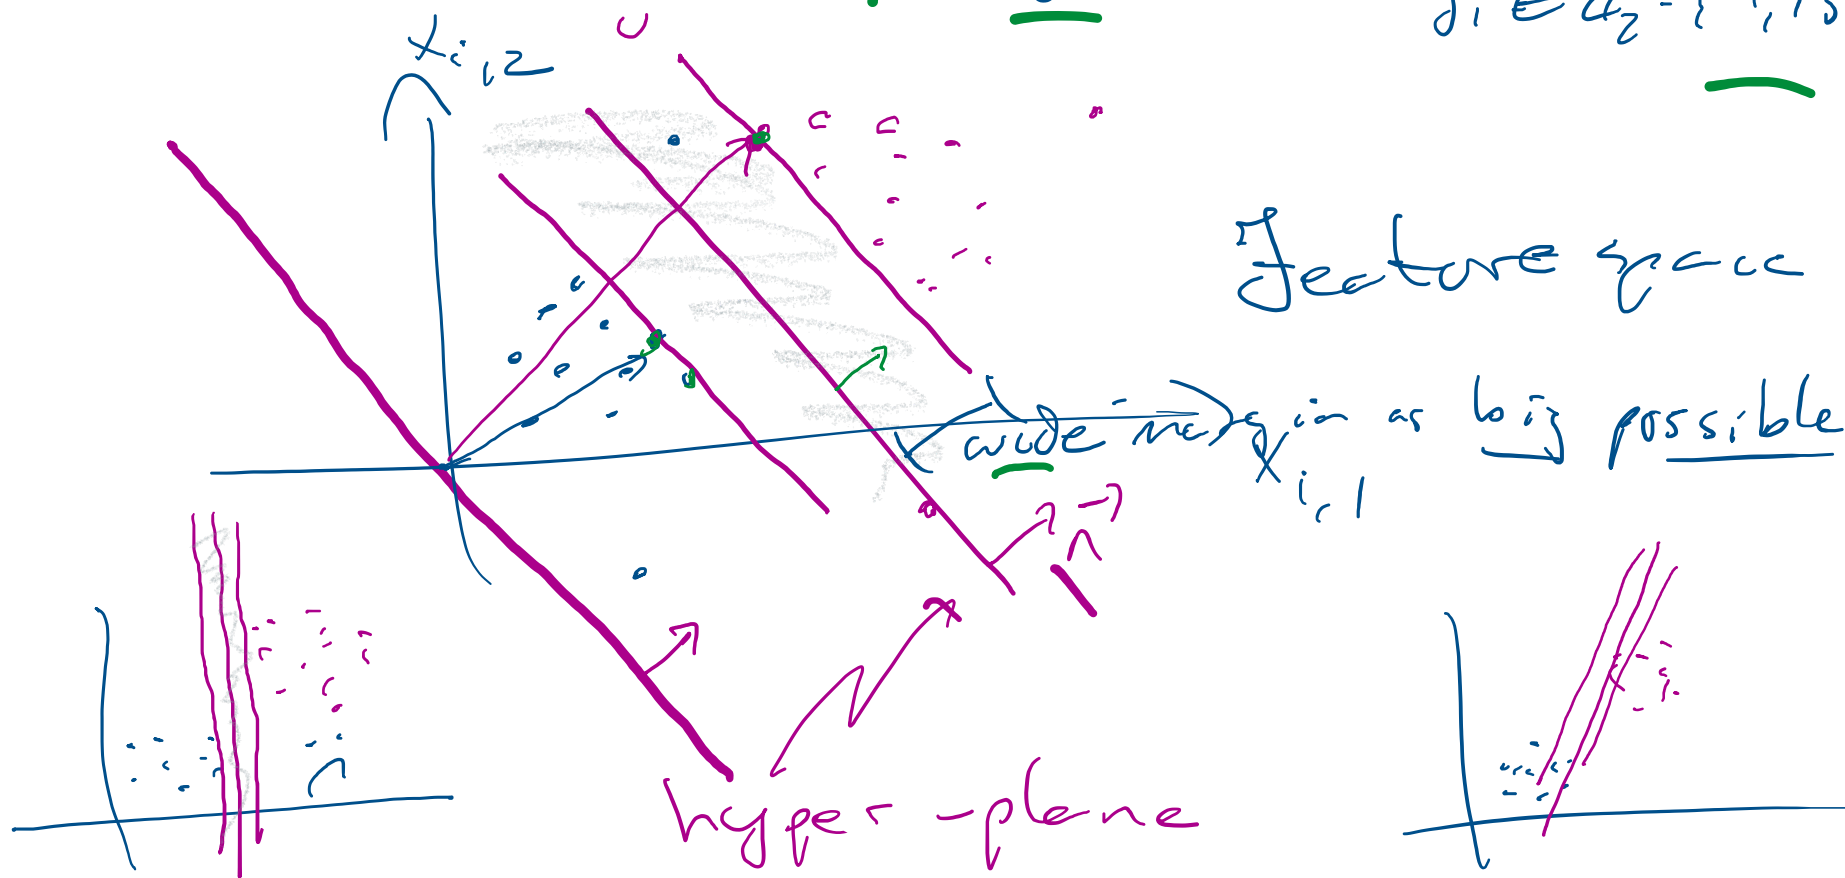 x_{i,2}
Feature space
wide margin as big possible
x_{i,1}
n⃗
hyper-plane